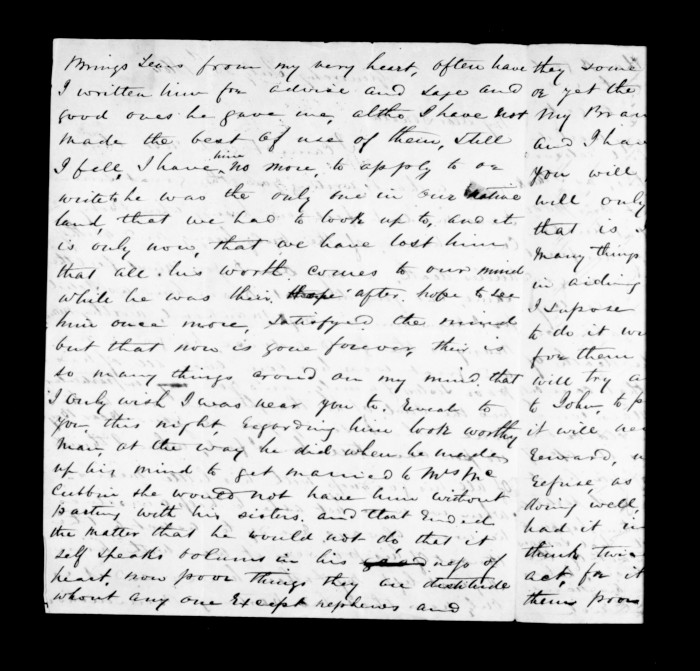 Brings Tears from my very heart, often have
I written him for advise and sage and
good ones he gave me, altho I have not
made the best of use of them, still
I fell, I have him no more, to apply to or
write to he was the only one in our native
land, that we had to look up to, and it
is only now, that we have lost him
that all his worth comes to our mind
while he was their after hope to see
him once more, satisfyed the mind
but that now is gone forever, their is
so many things around on my mind that
I only wish I was near you to
you, this night, regarding him look worthy
man, at the way he did when he made
up his mind to get married to Mrs Mc
Cubbin she would not have him without
parting with his sisters and that ended
the matter that he would not do, that it
self speaks volums in his good ness of
heart, now poor things they are destitude
whout any one Except nephews and
they some
or yet the
My Bran
and I hav
you will
will only
that is
many things
in aiding
I supose
to do it
for them
will try a
to John, to p
it will
Reward,
refuse, as
doing well,
had it in
think twi
act, for it
them poor